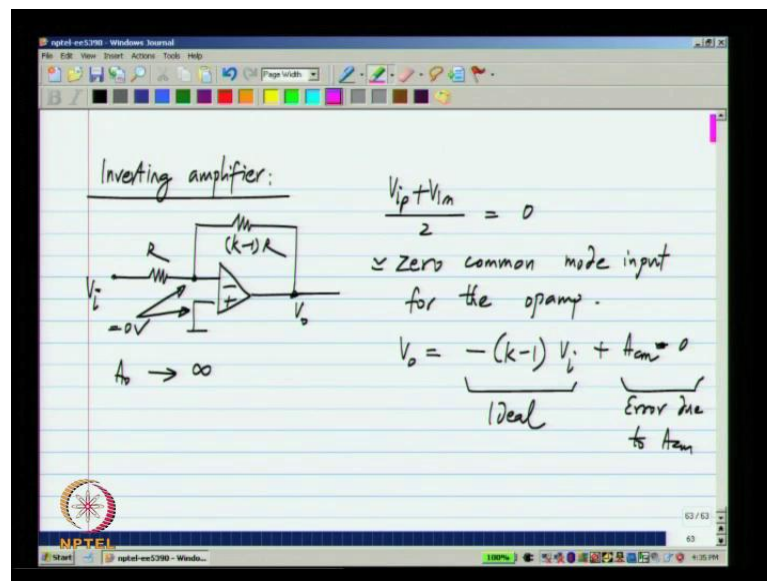 nptel-ee5390 - Windows Journal
File Edit View Insert Actions Tools Help
Page Width
B I
Inverting amplifier:
R
(k-1)R
Vi
=0V
-
+
Vo
A0 → ∞
Vip + Vim
2
= 0
≃ Zero common mode input
for the opamp.
Vo = -(k-1) Vi + Acm · 0
Ideal
Error due
to Acm
63 / 63
63
NPTEL
Start
nptel-ee5390 - Windo...
100%
4:35 PM